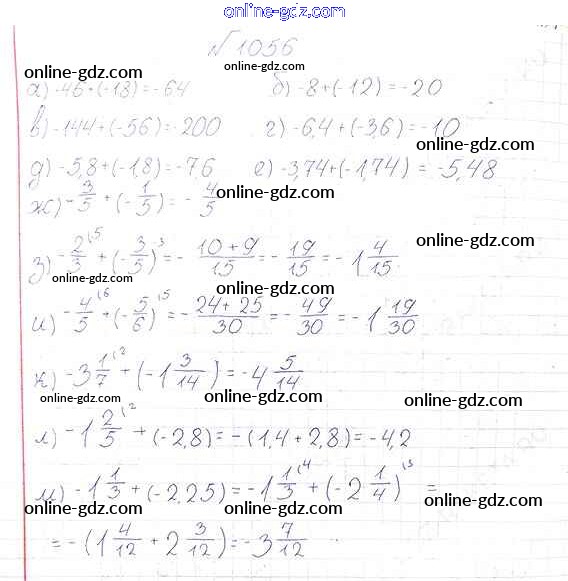 online-gdz.com
№ 1056
online-gdz.com online-gdz.com online-gdz.com
а) -46+(-18)=-64 б) -8+(-12)=-20
в) -144+(-56)=-200 г) -6,4+(-3,6)=-10
д) -5,8+(-1,8)=-7,6 е) -3,74+(-1,74)=-5,48
ж) -3/5+(-1/5)=-4/5
online-gdz.com
online-gdz.com
з) -2/3^(5+(-3/5)^(3=-(10+9)/15=-19/15=-1 4/15
online-gdz.com
online-gdz.com
и) -4/5^(6+(-5/6)^(5=-(24+25)/30=-49/30=-1 19/30
online-gdz.com
к) -3 1/7^(2+(-1 3/14)=-4 5/14
online-gdz.com online-gdz.com online-gdz.com
л) -1 2/5^(2+(-2,8)=-(1,4+2,8)=-4,2
online-gdz.com
м) -1 1/3+(-2,25)=-1 1/3^(4+(-2 1/4)^(3=
online-gdz.com online-gdz.com online-gdz.com
=-(1 4/12+2 3/12)=-3 7/12
online-gdz.com